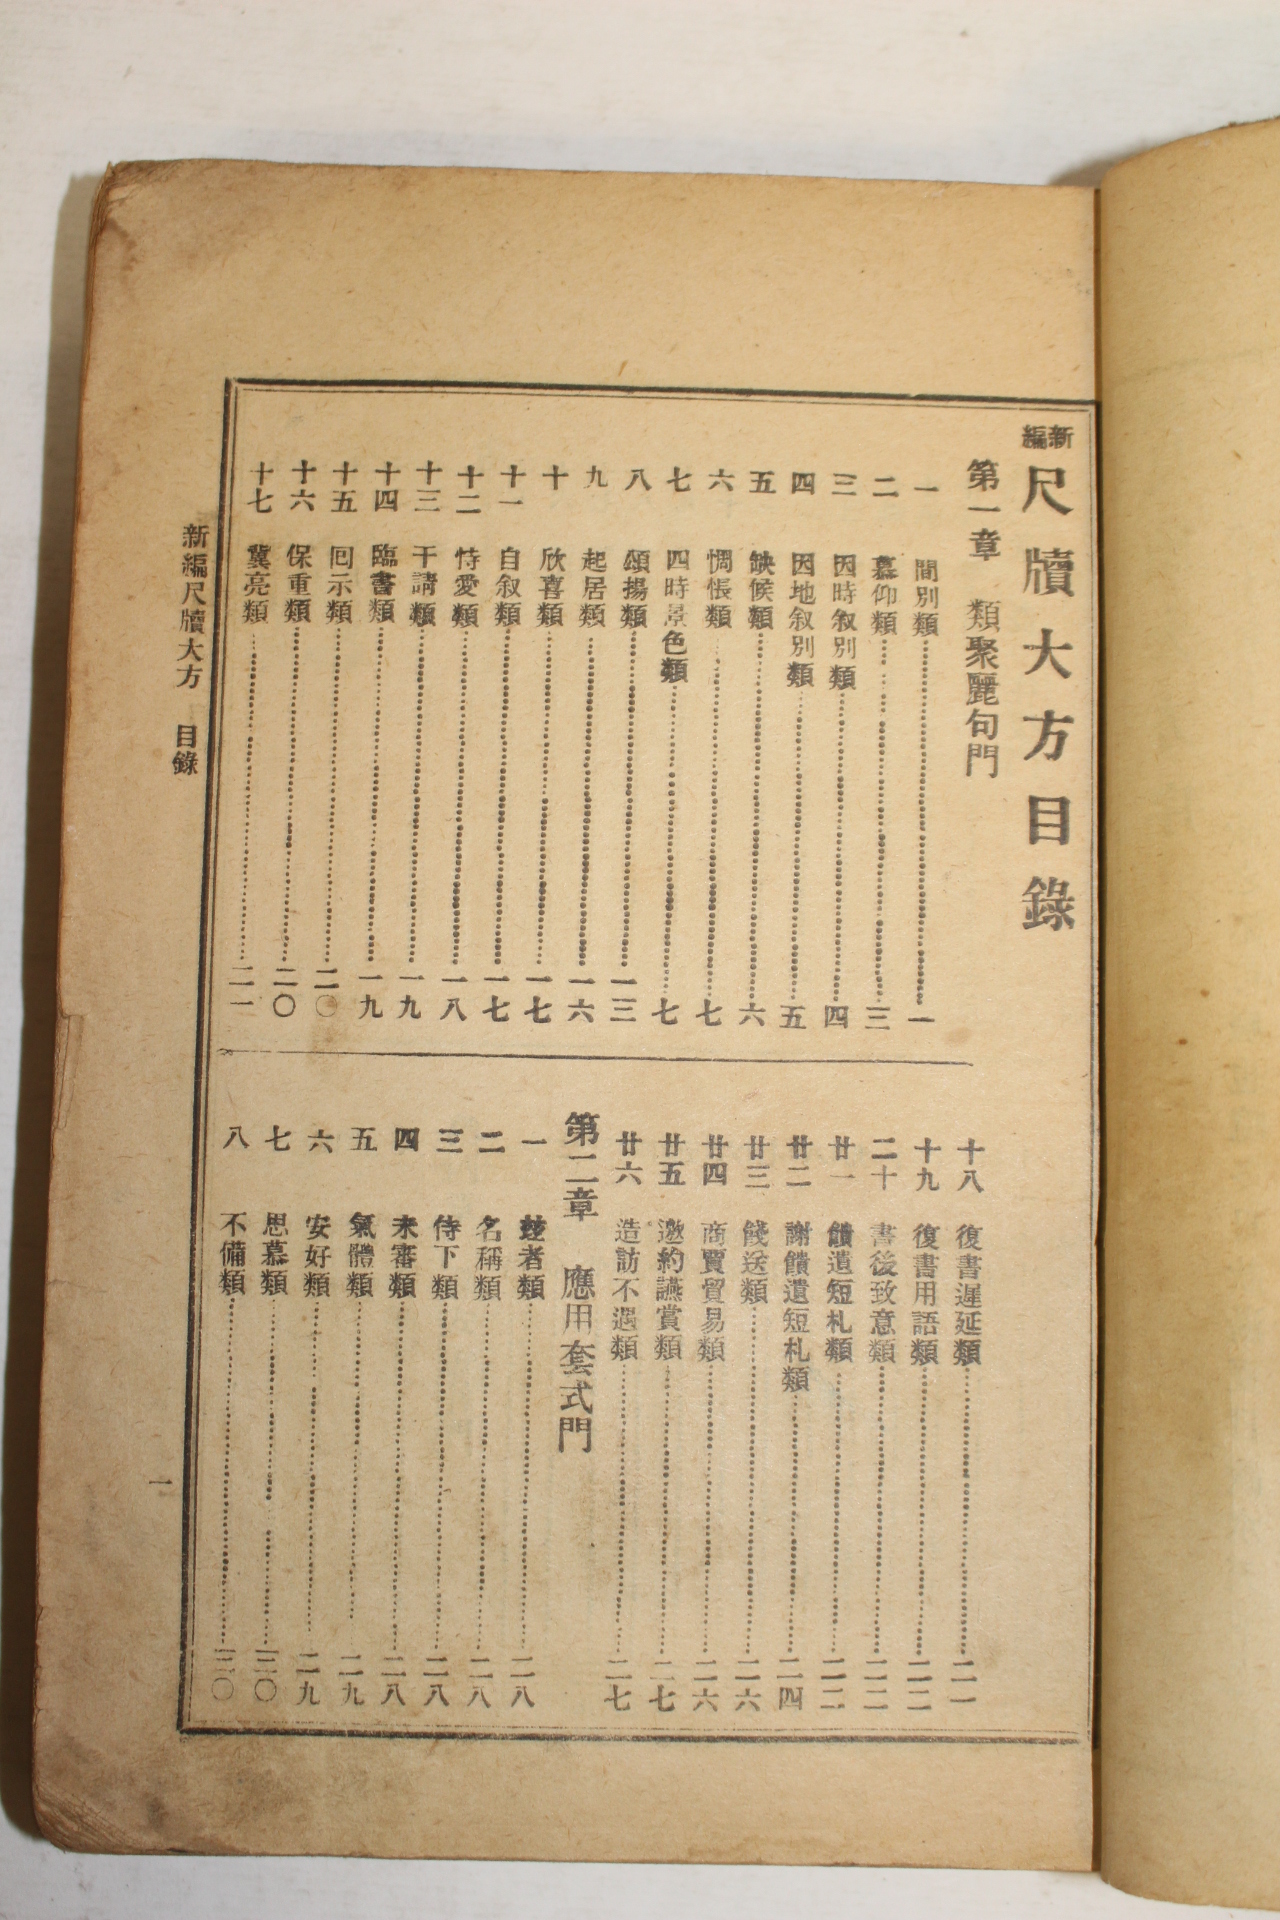 新編尺牘大方目錄
第一章 類聚麗句門
一 間別類 一
二 慕仰類 三
三 因時叙別類 四
四 因地叙別類 五
五 缺候類 六
六 惆悵類 七
七 四時景色類 七
八 頌揚類 一三
九 起居類 一六
十 欣喜類 一七
十一 自叙類 一七
十二 恃愛類 一八
十三 干請類 一九
十四 臨書類 一九
十五 囘示類 二〇
十六 保重類 二〇
十七 冀亮類 二一
十八 復書遲延類 二一
十九 復書用語類 二二
二十 書後致意類 二二
廿一 饋遺短札類 二二
廿二 謝饋遺短札類 二四
廿三 餞送類 二六
廿四 商賈貿易類 二六
廿五 邀約讌賞類 二七
廿六 造訪不遇類 二七
第二章 應用套式門
一 玆者類 二八
二 名稱類 二八
三 侍下類 二八
四 未審類 二八
五 氣體類 二九
六 安好類 二九
七 思慕類 三〇
八 不備類 三〇
新編尺牘大方 目錄
一